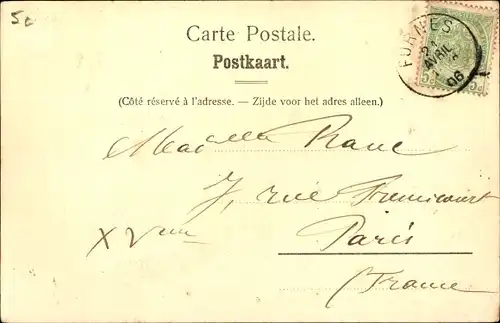 5c
Carte Postale.
Postkaart.
FURNES
AVRIL
06
5c 5c
(Côté réservé à l'adresse. — Zijde voor het adres alleen.)
Madelle
7, rue Fremicourt
XVeme
Paris
(France